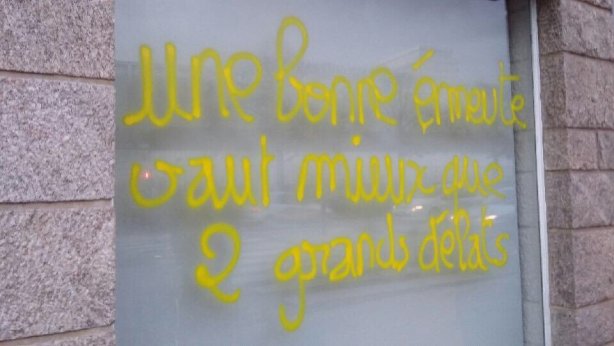 Une bonne émmeute
vaut mieux que
2 grands débats